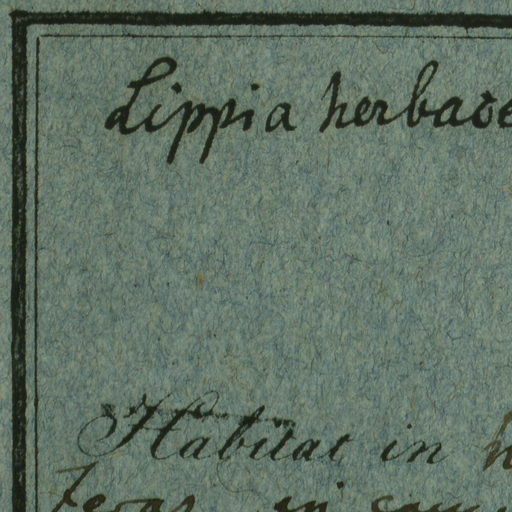 Lippia herbace
Habitat in h
in